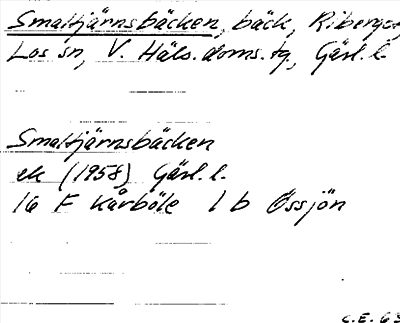 Smaltjärnsbäcken, bäck,
Los sn, V. Häls. doms. tg., Gävl. l.
Smaltjärnsbäcken
ek (1958) Gävl. l.
16 F Kårböle 1 b Össjön
C.E. 63